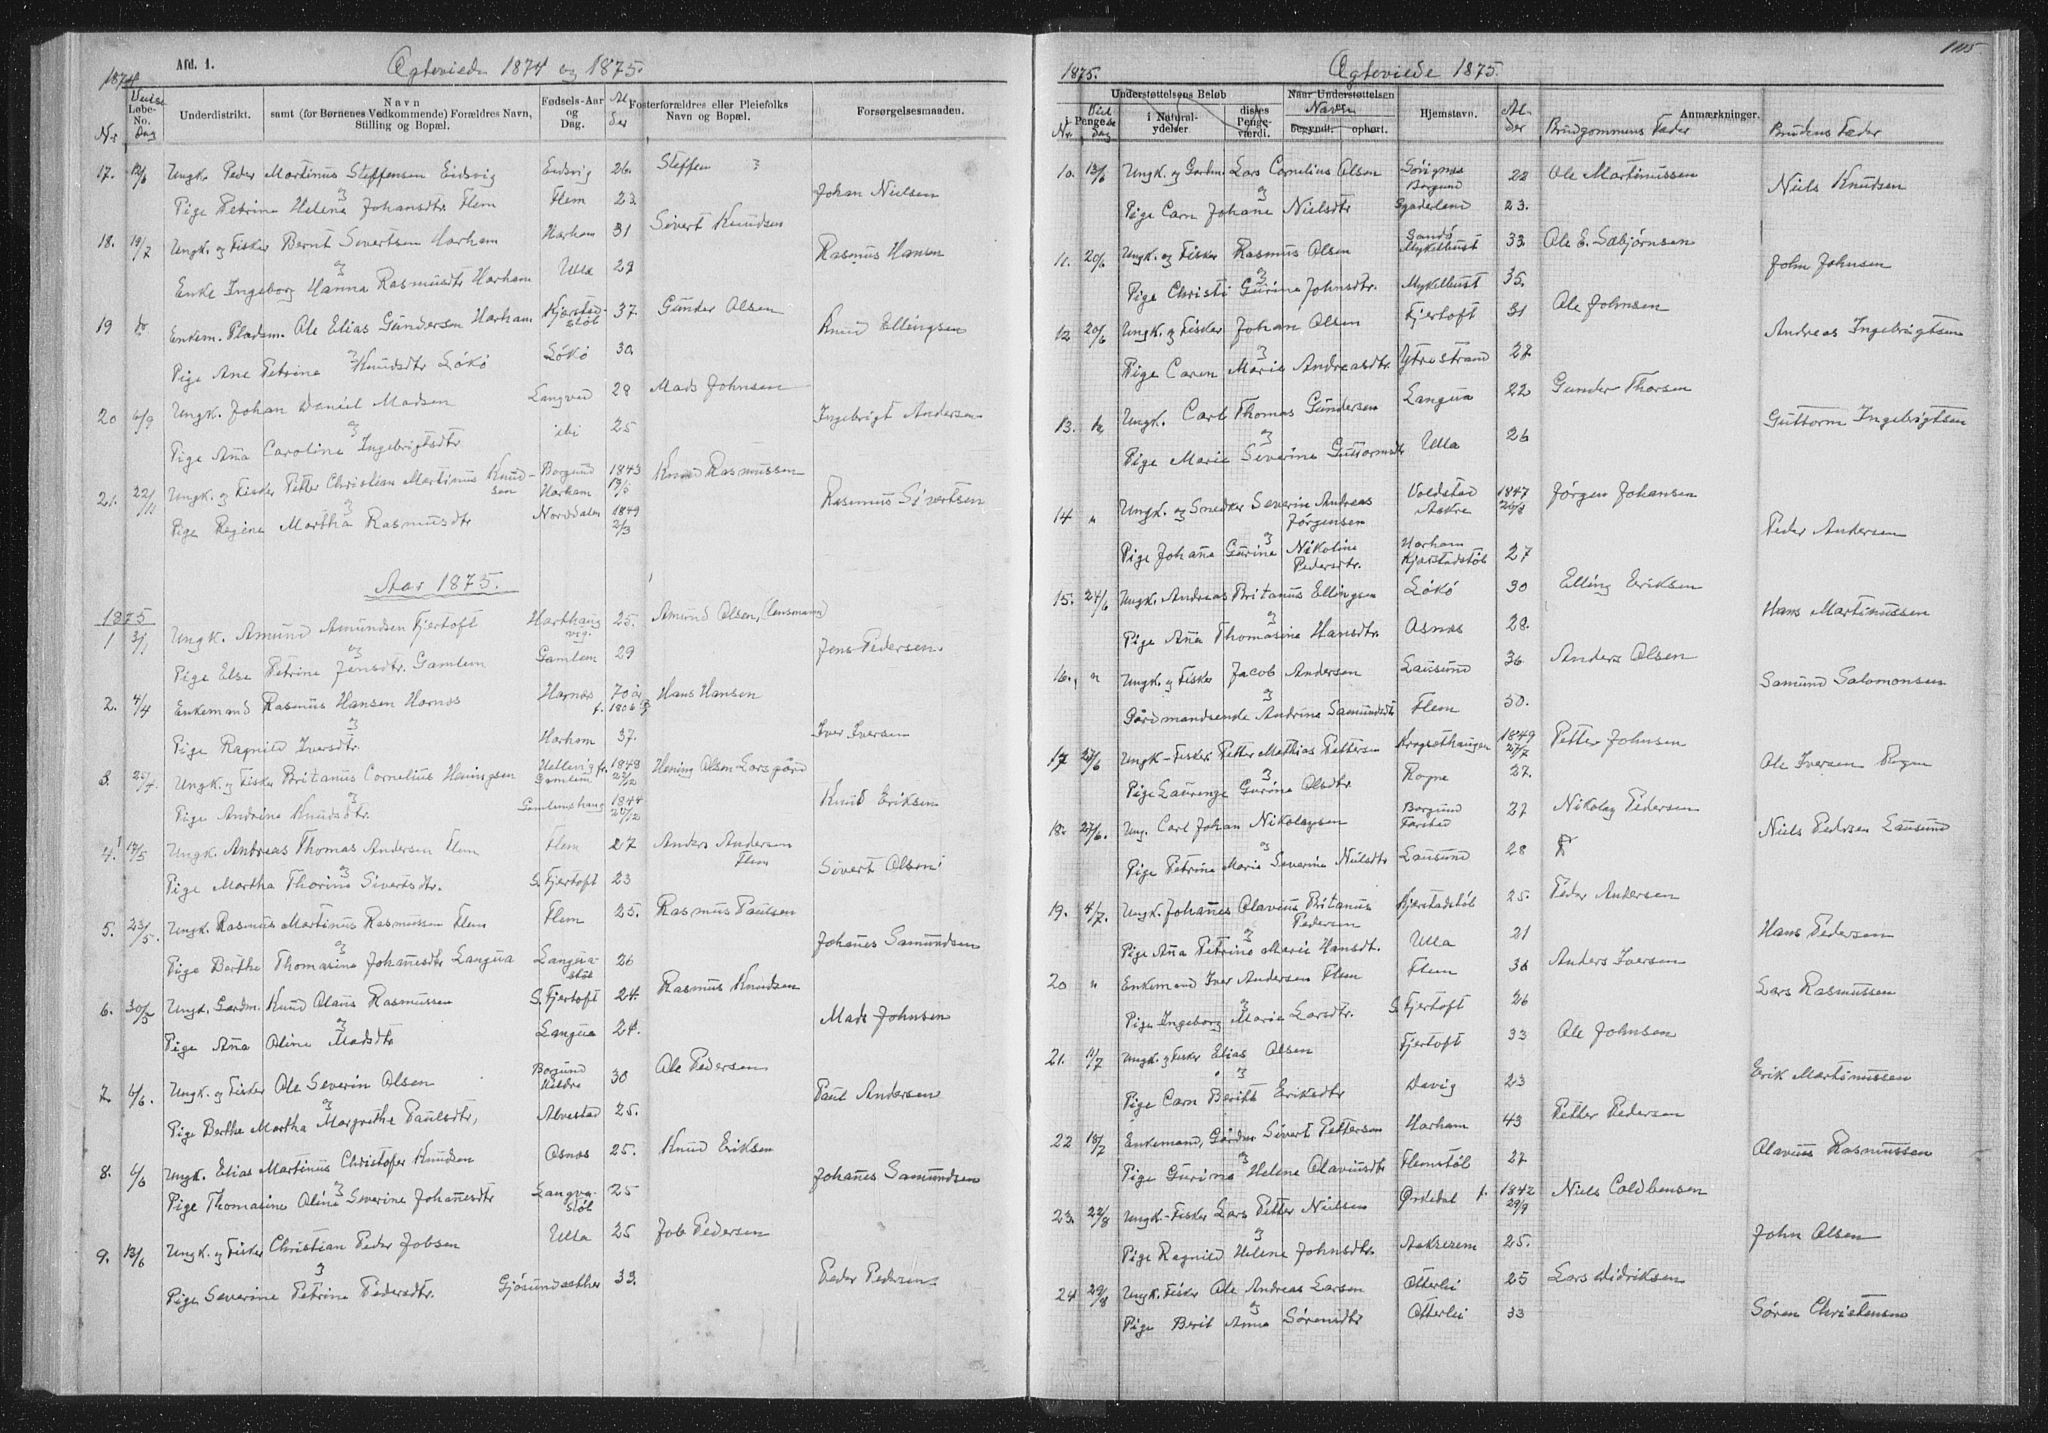 Afd. 1.
Ægteviede 1874 og 1875.
1874
Nr
Vielse
Løbe-
No.
Dag
Underdistrikt.
Navn
samt (for Børnenes Vedkommende) Forældres Navn,
Stilling og Bopæl.
Fødsels-Aar
og
Dag.
Al
der
Fosterforældres eller Pleiefolks
Navn og Bopæl.
Forsørgelsesmaaden.
17. 12/6 Ungk. Peder Martinus Steffensen Eidsvig Eidsvig 26. Steffen ?
og
Pige Petrine Helene Johansdtr Flem Flem 23 Johan Nielsen
18. 19/7 Ungk. og Fisker Bernt Sivertsen Harham Harham 31 Sivert Knudsen
og
Enke Ingeborg Hanna Rasmusdtr Harham Ulla 29 Rasmus Hansen
19 do Enkem. Pladsm. Ole Elias Gundersen Harham Kjerstad-
støl 37. Gunder Olsen
og
Pige Ane Petrine Knudsdtr Løkø Løkø 30 Knud Ellingsen
20 6/9 Ungk. Johan Daniel Madsen Langved 28 Mads Johnsen
og
Pige Aña Caroline Ingebrigtsdtr ibi 25 Ingebrigt Andersen
21. 22/11 Ungk. og Fisker Petter Christian Martinus Knud-
sen Borgund
Harham 1843 Knud Rasmussen
og
Pige Regine Martha Rasmusdtr Norddalen 1849
2/3 Rasmus Sivertsen
Aar 1875.
1875
1 3/1 Ungk. Amund Amundsen Fjertoft Harthaug
vig. 25. Amund Olsen, (Lensmand)
og
Pige Else Petrine Jensdtr. Gamlem Gamlem 29 Jens Pedersen
2. 4/4 Enkemand Rasmus Hansen Harnes Harnes 70 år
f. 1806 Hans Hansen
og
Pige Ragnild Iversdtr. Harham 37. Iver Iversen
3. 25/4. Ungk. og Fisker Britanus Cornelius Heningsen Hellevig fr.
Gamlem 1848 Hening Olsen Larsgård
og
Pige Andrine Knudsdtr. Gamlemshaug 1844 Knud Eriksen
4. 17/5 Ungk. Andreas Thomas Andersen Flem Flem 27 Anders Andersen
Flem
og
Pige Martha Thorine Sivertsdtr. S. Fjertoft 23 Sivert Olsen
5. 23/5. Ungk. Rasmus Martinus Rasmussen Flem Flem 25. Rasmus Paulsen
og
Pige Berthe Thomasine Johañesdtr Langva Langva-
støl 26 Johañes Samundsen
6. 30/5 Ungk. Gardm. Knud Olaus Rasmussen S. Fjertoft 24. Rasmus Knudsen
og
Pige Aña Oline Madsdtr Langva 24. Mads Johnsen
7. 6/6. Ungk. og Fisker Ole Severin Olsen Borgund
Hildre 30 Ole Pedersen
og
Pige Berthe Martha Margrethe Paulsdtr, Alvestad 25. Paul Andersen
8. 6/6 Ungk. Elias Martinus Christofer Knudsen Asnes 25. Knud Eriksen
og
Pige Thomasine Oline Severine Johañesdtr Langva-
støl 25 Johañes Samundsen
9. 13/6 Ungk. og Fisker Christian Peder Jobsen Ulla 25 Job Pedersen
og
Pige Severine Petrine Pedersdtr. Gjøsundsæther 33. Peder Pedersen
1105
1875.
Ægteviede 1875.
Understøttelsens Beløb
Nr.
i Penge.
Viel
se
Dag
i Natural-
ydelser.
disses
Penge-
værdi.
Naar Understøttelsen
Navn
begyndt. ophørt.
Hjemstavn.
Al-
der
Anmærkninger.
Brudgommens Fader
Brudens Fader
10. 13/6 Ungk. og Gardm. Lars Cornelius Olsen Borgund 22 Ole Martinussen
og
Pige Carn Johane Nielsdtr 23. Niels Knudsen
11. 20/6 Ungk. og Fisker Rasmus Olsen Sandø
Mykelbust 33. Ole E. Sæbjørnsen
og
Pige Christi Gurine Johnsdtr. Mykelbust 35. John Johnsen
12. 20/6 Ungk. og Fisker Johan Olsen Fjertoft 31 Ole Johnsen
og
Pige Caren Marie Andreasdtr. Ytrestrand 27 Andreas Ingebrigtsen
13. Ungk. Carl Thomas Gundersen Langva 22 Gunder Thorsen
og
Pige Marie Severine Guttormsdtr Ulla 26 Guttorm Ingebrigtsen
14 " Ungk. og Snedker Severin Andreas
Jørgensen Voldstad
Aakre 1847 Jørgen Johansen
og
Pige Johañe Gurine Nikoline
Pedersdtr. Harham
Kjærstadstøl 27 Peder Andersen
15. 24/6 Ungk. Andreas Britanus Ellingsen Løkø 30 Elling Eriksen
og
Pige Aña Thomasine Hansdtr. Asnes 28. Hans Martinussen
16. " Ungk. og Fisker Jacob Andersen Lausund 36. Anders Olsen
og
Gårdmandsenke Andrine Samundsdtr Flem 50. Samund Salomonsen
17 27/6 Ungk - Fisker Petter Mathias Pettersen Krogsæthaugen 1849
27/7 Petter Johnsen
og
Pige Laurenze Gurine Olsdtr. Rogne 27. Ole Iversen Rogne
18. 27/6. Ung. Carl Johan Nikolaysen Borgund
Farstad 27 Nikolay Pedersen
og
Pige Petrine Marie Severine Nielsdtr Lausund 28 Niels Pedersen Lausund
19. 4/7. Ungk. Johañes Olavius Britanus
Pedersen Kjærstadstøl 25. Peder Andersen
og
Pige Aña Petrine Marie Hansdt. Ulla 21 Hans Pedersen
20 " Enkemand Iver Andersen Flem Flem 36 Anders Iversen
og
Pige Ingeborg Marie Larsdtr. S. Fjertoft 26 Lars Rasmussen
21. 11/7 Ungk. og Fisker Elias Olsen Fjertoft 33 Ole Johnsen
og
Pige Carn Berith Eriksdtr Davig 23 Erik Martinussen
22 18/7 Enkemand, Gårdm Sivert Pettersen Harham 43 Petter Pedersen
og
Pige Gurine Helene Olaviusdtr Flemstøl 27 Olavius Rasmussen
23. 22/8 Ungk - Fisker Lars Petter Nielsen Ørkedal f. 1842
29/9 Niels Coldbensen
og
Pige Ragnild Helene Johnsdtr. Aakrerem 25. John Olsen
24 29/8 Ungk. Fisker Ole Andreas Larsen Otterlei 25 Lars Didriksen
og
Pige Berit Anne Sørensdtr Otterlei 33 Søren Christensen